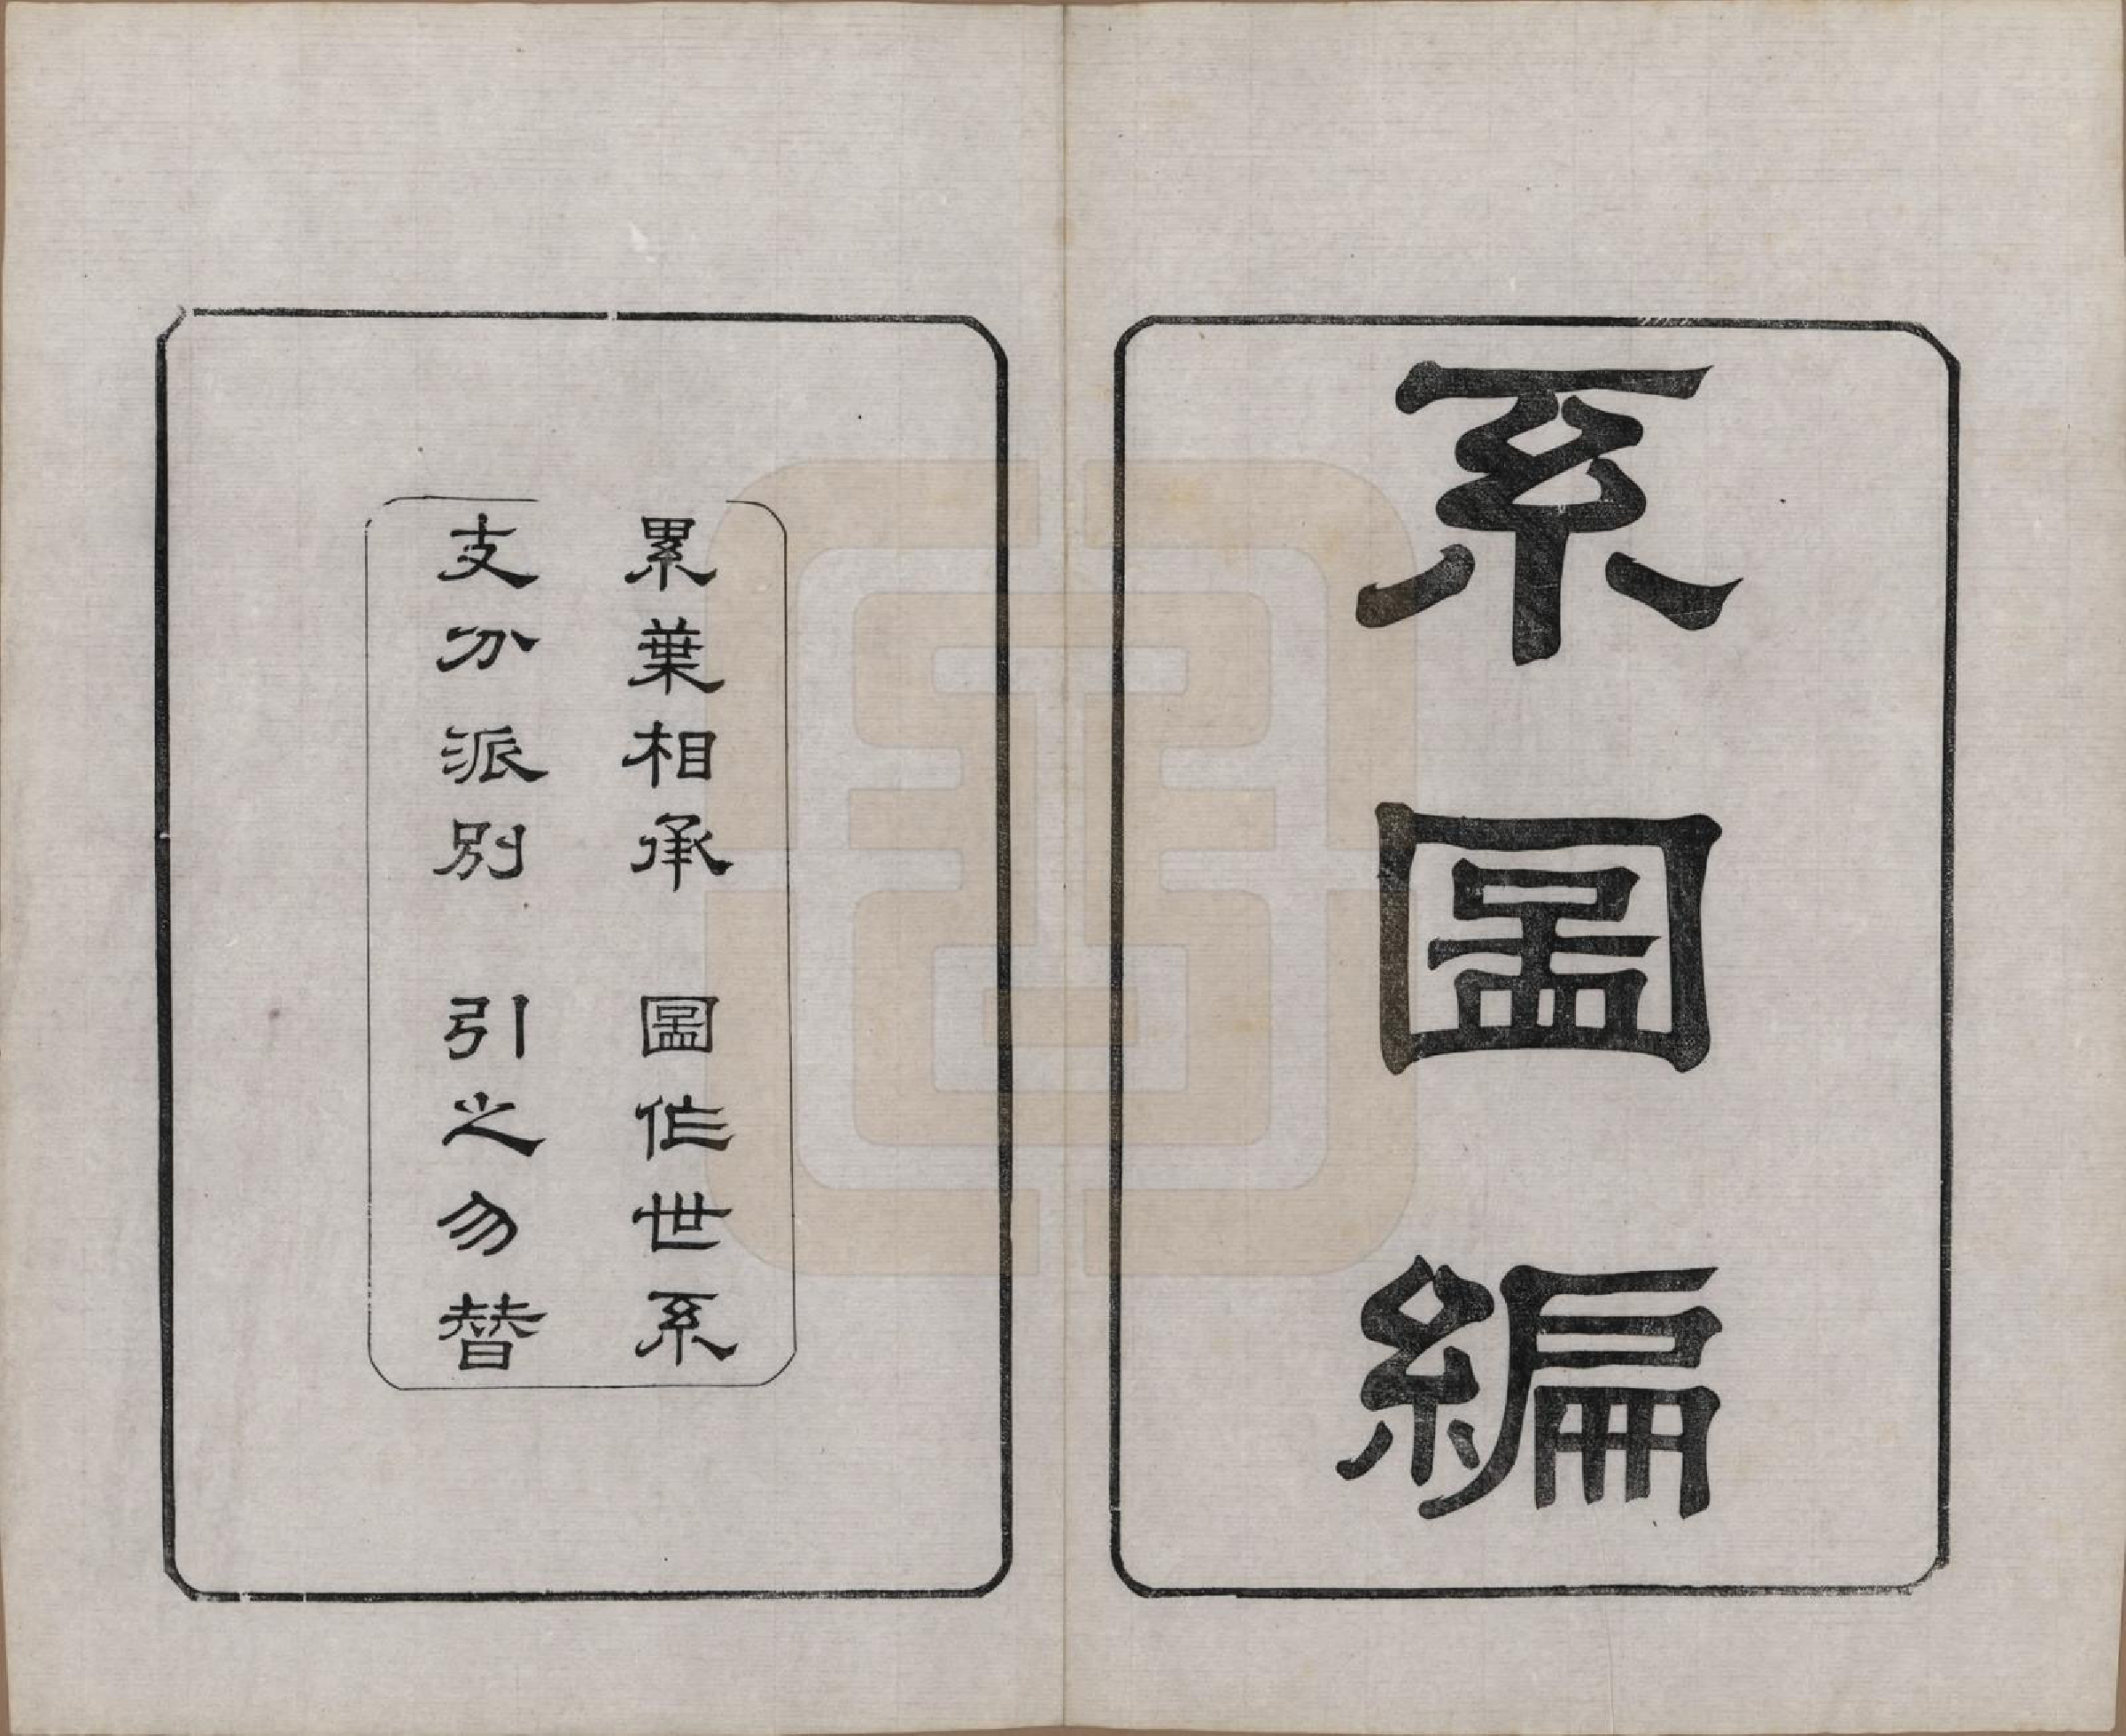 系圖編
累葉相承 圖作世系
支分派別 引之勿替